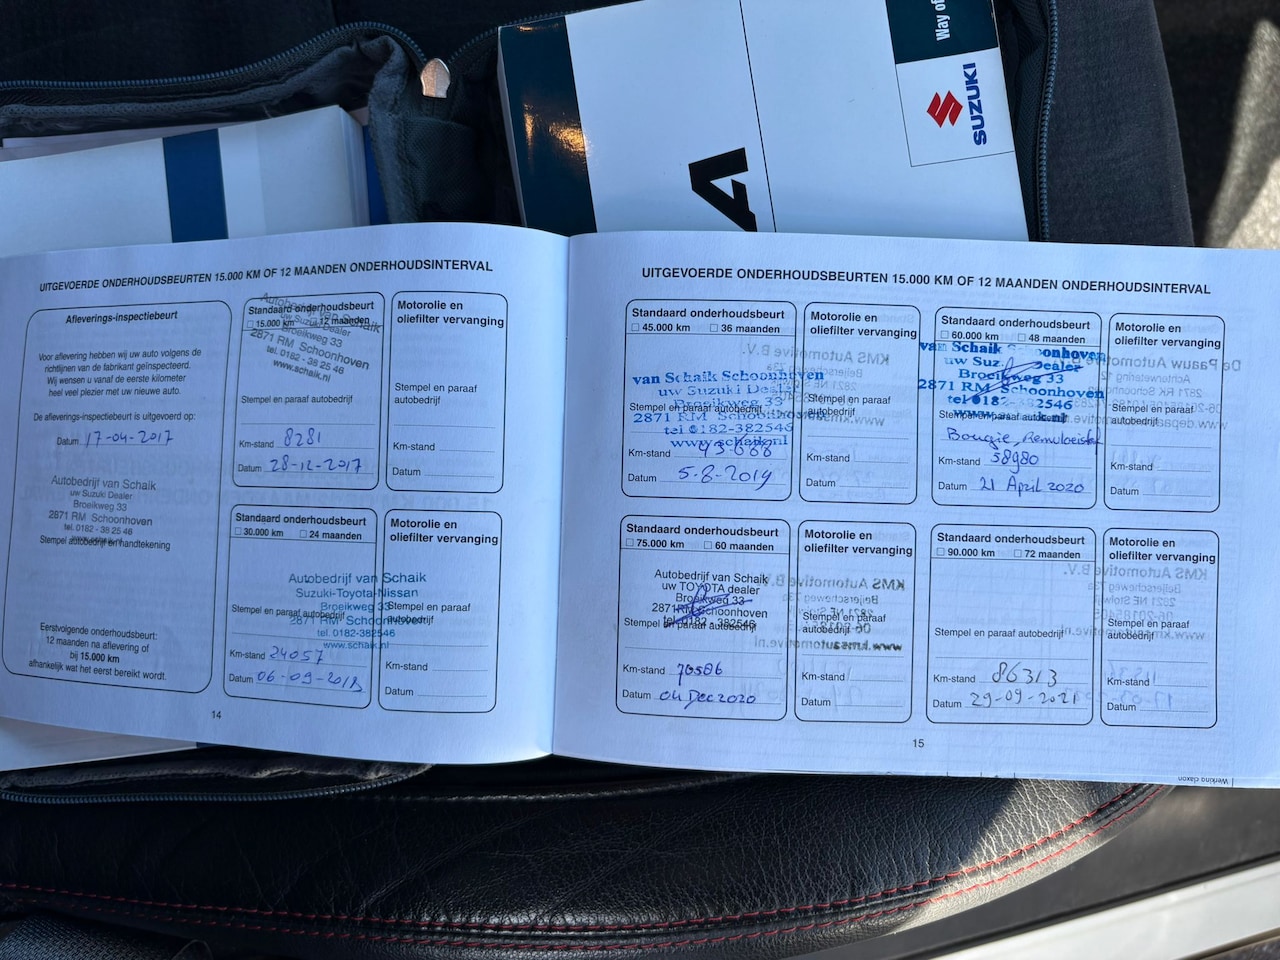 Way of
SUZUKI
A
UITGEVOERDE ONDERHOUDSBEURTEN 15.000 KM OF 12 MAANDEN ONDERHOUDSINTERVAL
Afleverings-inspectiebeurt
Voor aflevering hebben wij uw auto volgens de
richtlijnen van de fabrikant geïnspecteerd.
Wij wensen u vanaf de eerste kilometer
heel veel plezier met uw nieuwe auto.
De afleverings-inspectiebeurt is uitgevoerd op:
Datum 17-04-2017
Autobedrijf van Schaik
uw Suzuki Dealer
Broeikweg 33
2871 RM Schoonhoven
tel. 0182 - 38 25 46
www.schaik.nl
Stempel autobedrijf en handtekening
Eerstvolgende onderhoudsbeurt:
12 maanden na aflevering of
bij 15.000 km
afhankelijk wat het eerst bereikt wordt.
Standaard onderhoudsbeurt
15.000 km 12 maanden
Autobedrijf van Schaik
uw Suzuki Dealer
Broeikweg 33
2871 RM Schoonhoven
tel. 0182 - 38 25 46
www.schaik.nl
Stempel en paraaf autobedrijf
Km-stand 8281
Datum 28-12-2017
Motorolie en
oliefilter vervanging
Stempel en paraaf
autobedrijf
Km-stand
Datum
Standaard onderhoudsbeurt
30.000 km 24 maanden
Autobedrijf van Schaik
Suzuki-Toyota-Nissan
Broeikweg 33
2871 RM Schoonhoven
tel. 0182-382546
www.schaik.nl
Stempel en paraaf autobedrijf
Km-stand 24057
Datum 06-09-2018
Motorolie en
oliefilter vervanging
Stempel en paraaf
autobedrijf
Km-stand
Datum
14
UITGEVOERDE ONDERHOUDSBEURTEN 15.000 KM OF 12 MAANDEN ONDERHOUDSINTERVAL
Standaard onderhoudsbeurt
45.000 km 36 maanden
van Schaik Schoonhoven
uw Suzuki Dealer
Broeikweg 33
2871 RM Schoonhoven
tel 0182-382546
www.schaik.nl
Stempel en paraaf autobedrijf
Km-stand
Datum 5-8-2019
Motorolie en
oliefilter vervanging
Stempel en paraaf
autobedrijf
Km-stand
Datum
Standaard onderhoudsbeurt
60.000 km 48 maanden
van Schaik Schoonhoven
uw Suzuki Dealer
Broeikweg 33
2871 RM Schoonhoven
tel 0182-382546
Stempel en paraaf autobedrijf
Bougie, Remvloeistof
Km-stand 58980
Datum 21 April 2020
Motorolie en
oliefilter vervanging
Stempel en paraaf
autobedrijf
Km-stand
Datum
Standaard onderhoudsbeurt
75.000 km 60 maanden
Autobedrijf van Schaik
uw TOYOTA dealer
Broeikweg 33
2871 RM Schoonhoven
tel. 0182 - 382546
Stempel en paraaf autobedrijf
Km-stand 70586
Datum 04 Dec 2020
Motorolie en
oliefilter vervanging
Stempel en paraaf
autobedrijf
Km-stand
Datum
Standaard onderhoudsbeurt
90.000 km 72 maanden
Stempel en paraaf autobedrijf
Km-stand 86313
Datum 29-09-2021
Motorolie en
oliefilter vervanging
Stempel en paraaf
autobedrijf
Km-stand
Datum
15
Werking claxon